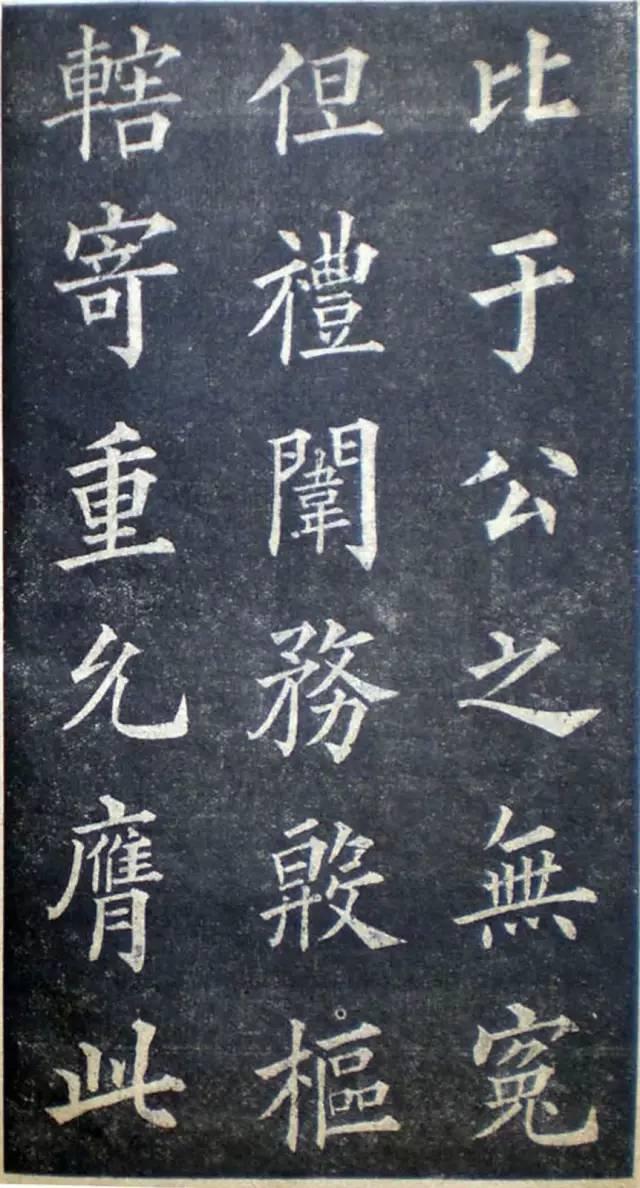 比于公之無寃
但禮闈務殷樞
轄寄重允膺此